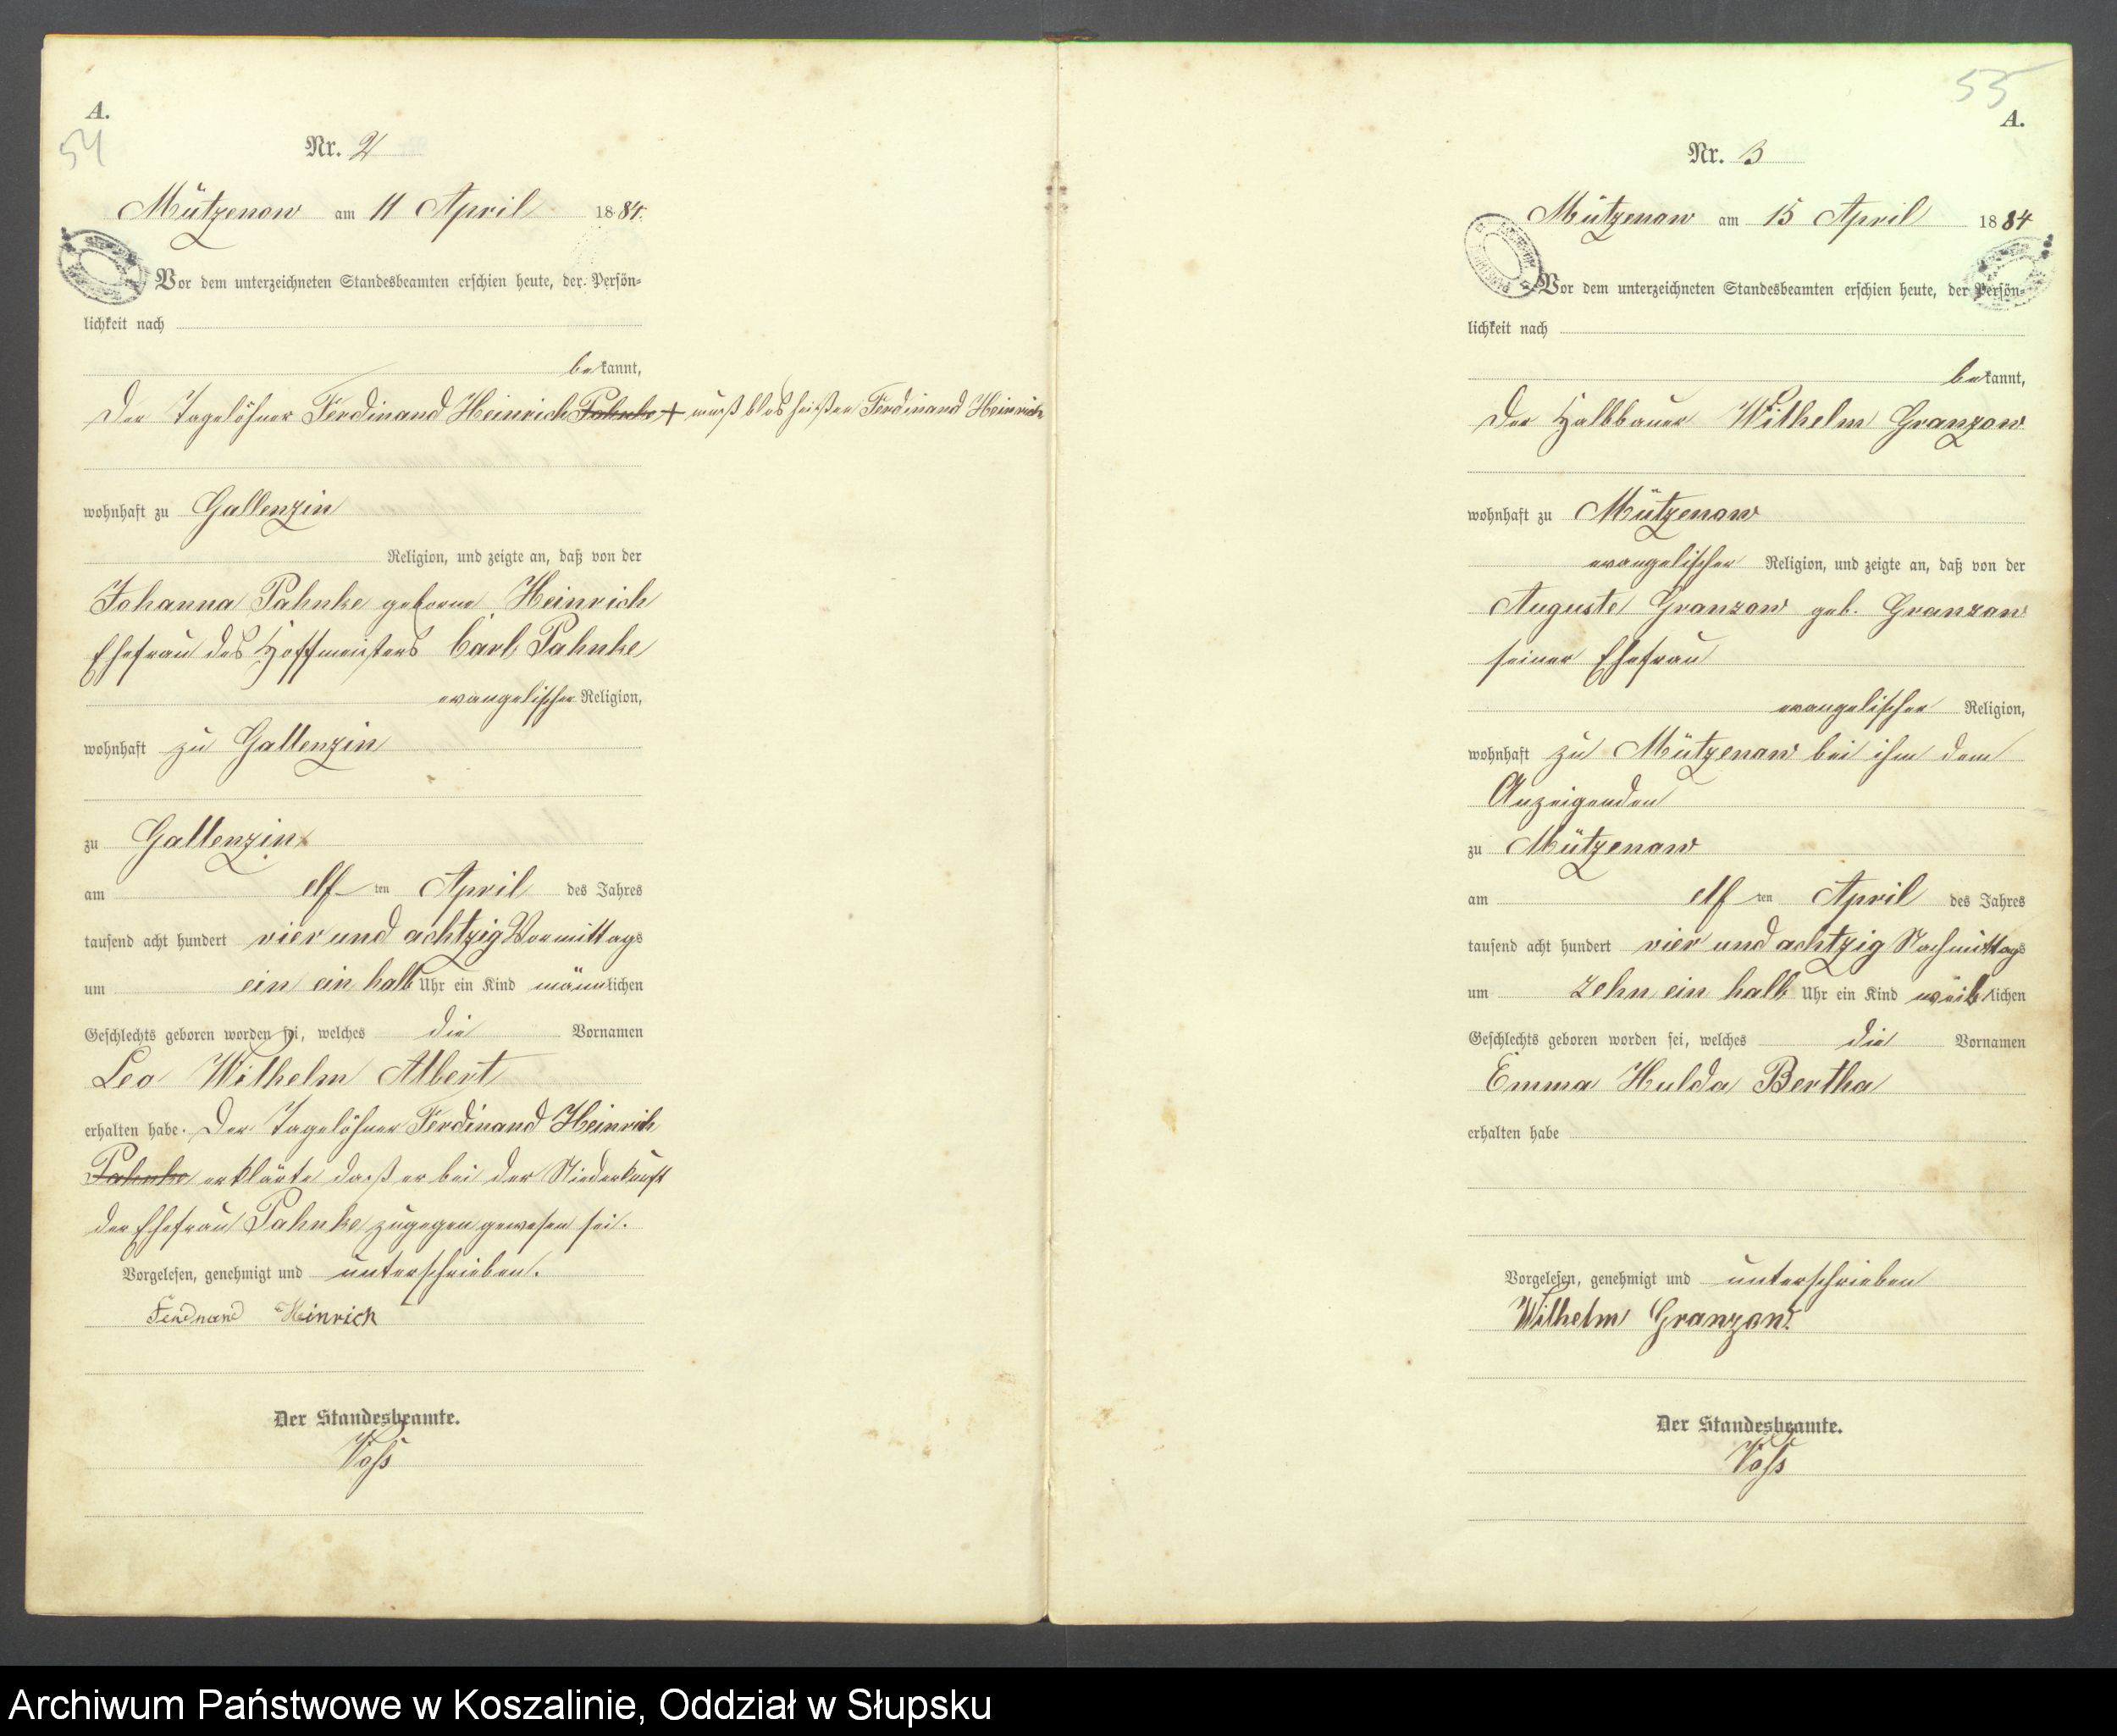 A.
54
Nr. 2
Mützenow am 11 April 1884.
Vor dem unterzeichneten Standesbeamten erschien heute, der Persön-
lichkeit nach
bekannt,
der Tagelöhner Ferdinand Heinrich Pahnke + muß blos heißen Ferdinand Heinrich
wohnhaft zu Gallenzin
Religion, und zeigte an, daß von der
Johanna Pahnke geborne Heinrich
Ehefrau des Hoffmeisters Carl Pahnke
evangelischer Religion,
wohnhaft zu Gallenzin
zu Gallenzin
am elf ten April des Jahres
tausend acht hundert vier und achtzig Vormittags
um ein ein halb Uhr ein Kind männlichen
Geschlechts geboren worden sei, welches die Vornamen
Leo Wilhelm Albert
erhalten habe. Der Tagelöhner Ferdinand Heinrich
Pahnke erklärte daß er bei der Niederkunft
der Ehefrau Pahnke zugegen gewesen sei.
Vorgelesen, genehmigt und unterschrieben.
Ferdinand Heinrich
Der Standesbeamte.
Voss
55
A.
Nr. 3
Mützenow am 15 April 1884
Vor dem unterzeichneten Standesbeamten erschien heute, der Persön-
lichkeit nach
bekannt,
der Halbbauer Wilhelm Granzow
wohnhaft zu Mützenow
evangelischer Religion, und zeigte an, daß von der
Auguste Granzow geb. Granzow
seiner Ehefrau
evangelischer Religion,
wohnhaft zu Mützenow bei ihm dem
Anzeigenden
zu Mützenow
am elf ten April des Jahres
tausend acht hundert vier und achtzig Nachmittags
um zehn ein halb Uhr ein Kind weiblichen
Geschlechts geboren worden sei, welches die Vornamen
Emma Hulda Bertha
erhalten habe
Vorgelesen, genehmigt und unterschrieben
Wilhelm Granzow
Der Standesbeamte.
Voss
Archiwum Państwowe w Koszalinie, Oddział w Słupsku